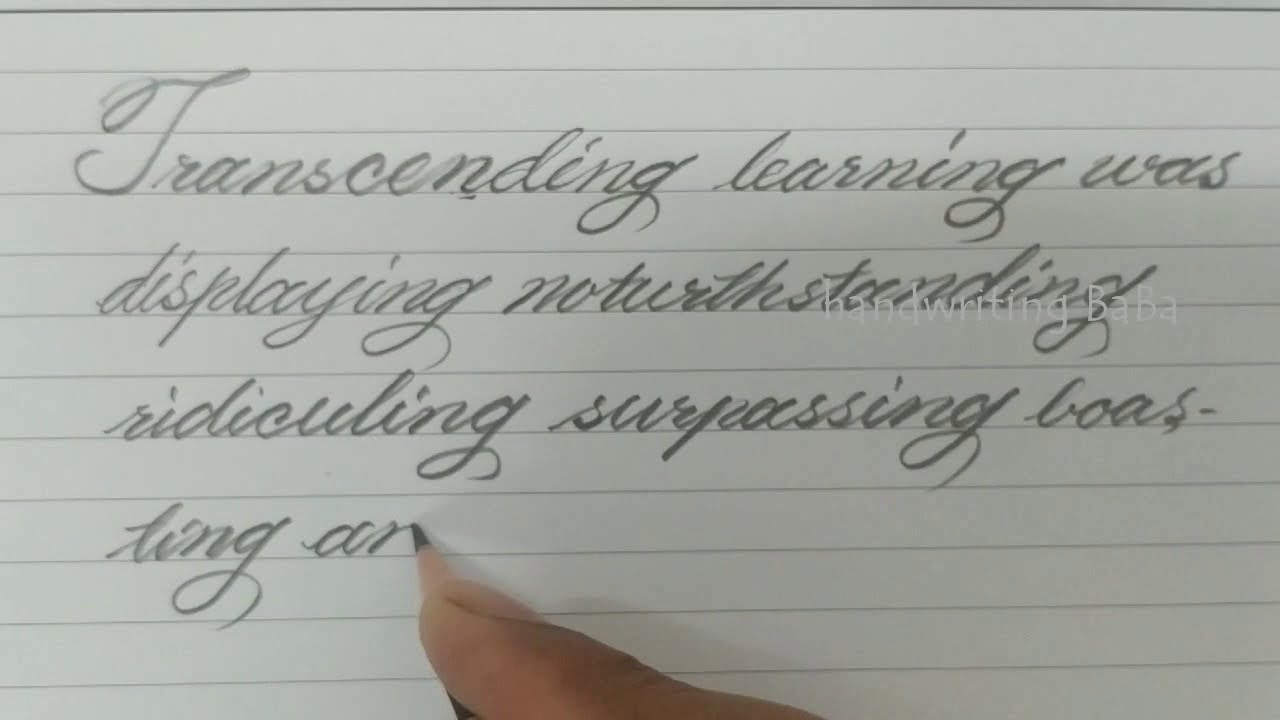 Transcending learning was
displaying noturthstanding
handwriting BaBa
ridiculing surpassing boas-
ting an